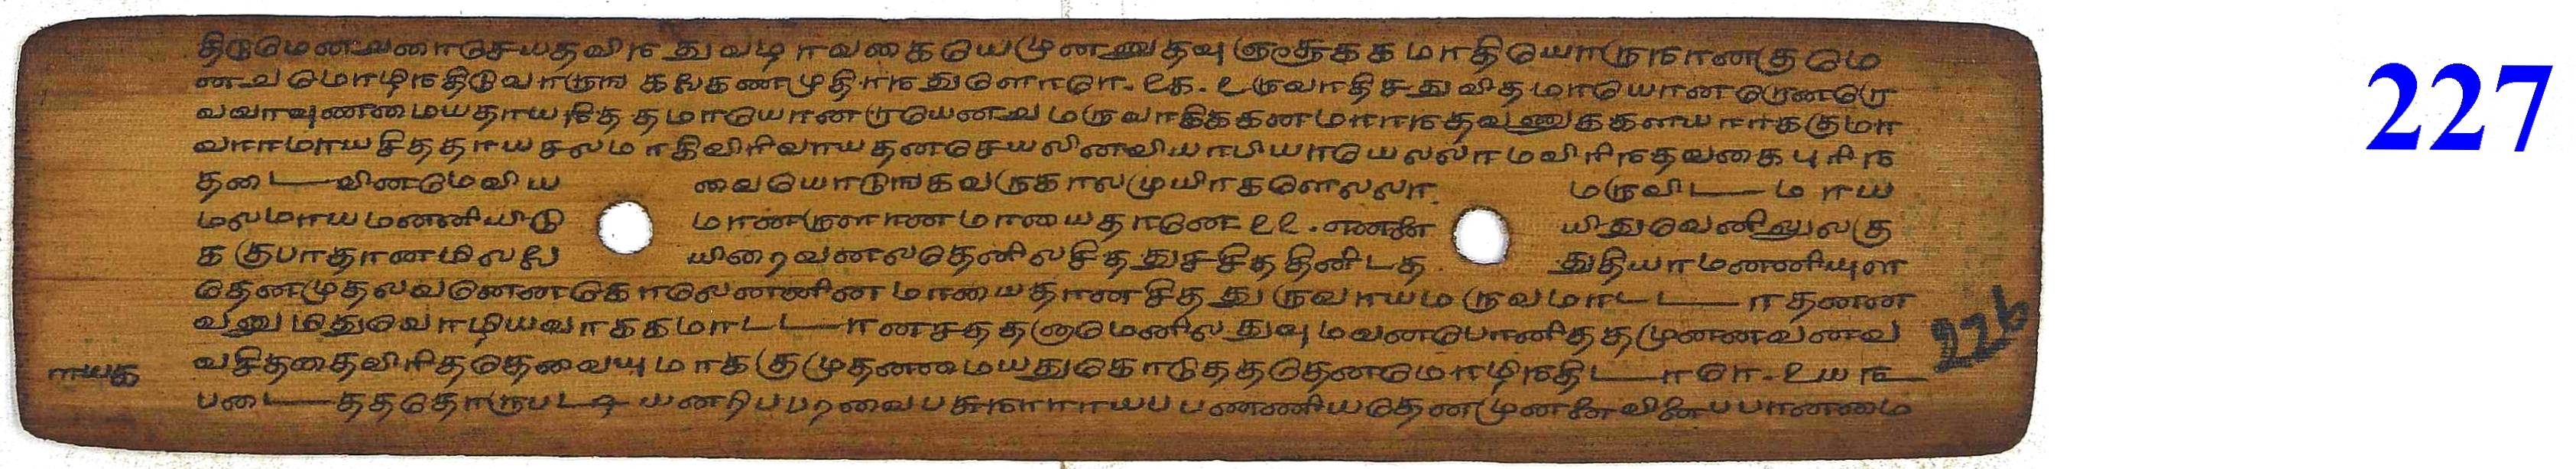 திடுமெனவனாடுசெயதவிந துவழாவகையெமுனனுதவு ருரகக மாதியொருநானகுமெ
னவமொழிநதிடுவாருங கலகணமுதிாந துளொரெ. உக. உருவாதி சதுவிதமாயொனறெனறெ
வவாவுணமையதாய நித தமாயொனறாயெனவ மருவாகிககனமாாநதவணுககளயாாககுமா
வாாமாயசிததாயசலமாகிவிரிவாயதனசெயலினவியாபியாயெலலாமவிரிநதவகை புரிந
தடைவினடுமவிய வையொடுஙகவருகாலமுயிாகளெலலா மருவிடமாய
மலமாயமணணியிடு மாணருளாணமாயைதானெ உஉ. எனனை யிதுவெனிலுலகு
ககுபாதானமிலலை யிறைவனலதெனிலசித துசசிததினிடத துதியாமணணியுள
தெனமுதலவனெனகொலெனனினமாயைதான சித து ருவாயம ருவமாடடாதனன
வனுமிதுவொழியவாககமாடடானசததனுமெனிலதுவுமவனபொனிததமுனனவனவ
வசிததைவிரிததெவையுமாககுமுதனமையதுகொடுததெனமொழிநதிடாரெ. உயந
படைததொருபடியனறிபபறவைபசுநராாயபபணணியதெனமுனனைவினைபபானமை
226
227